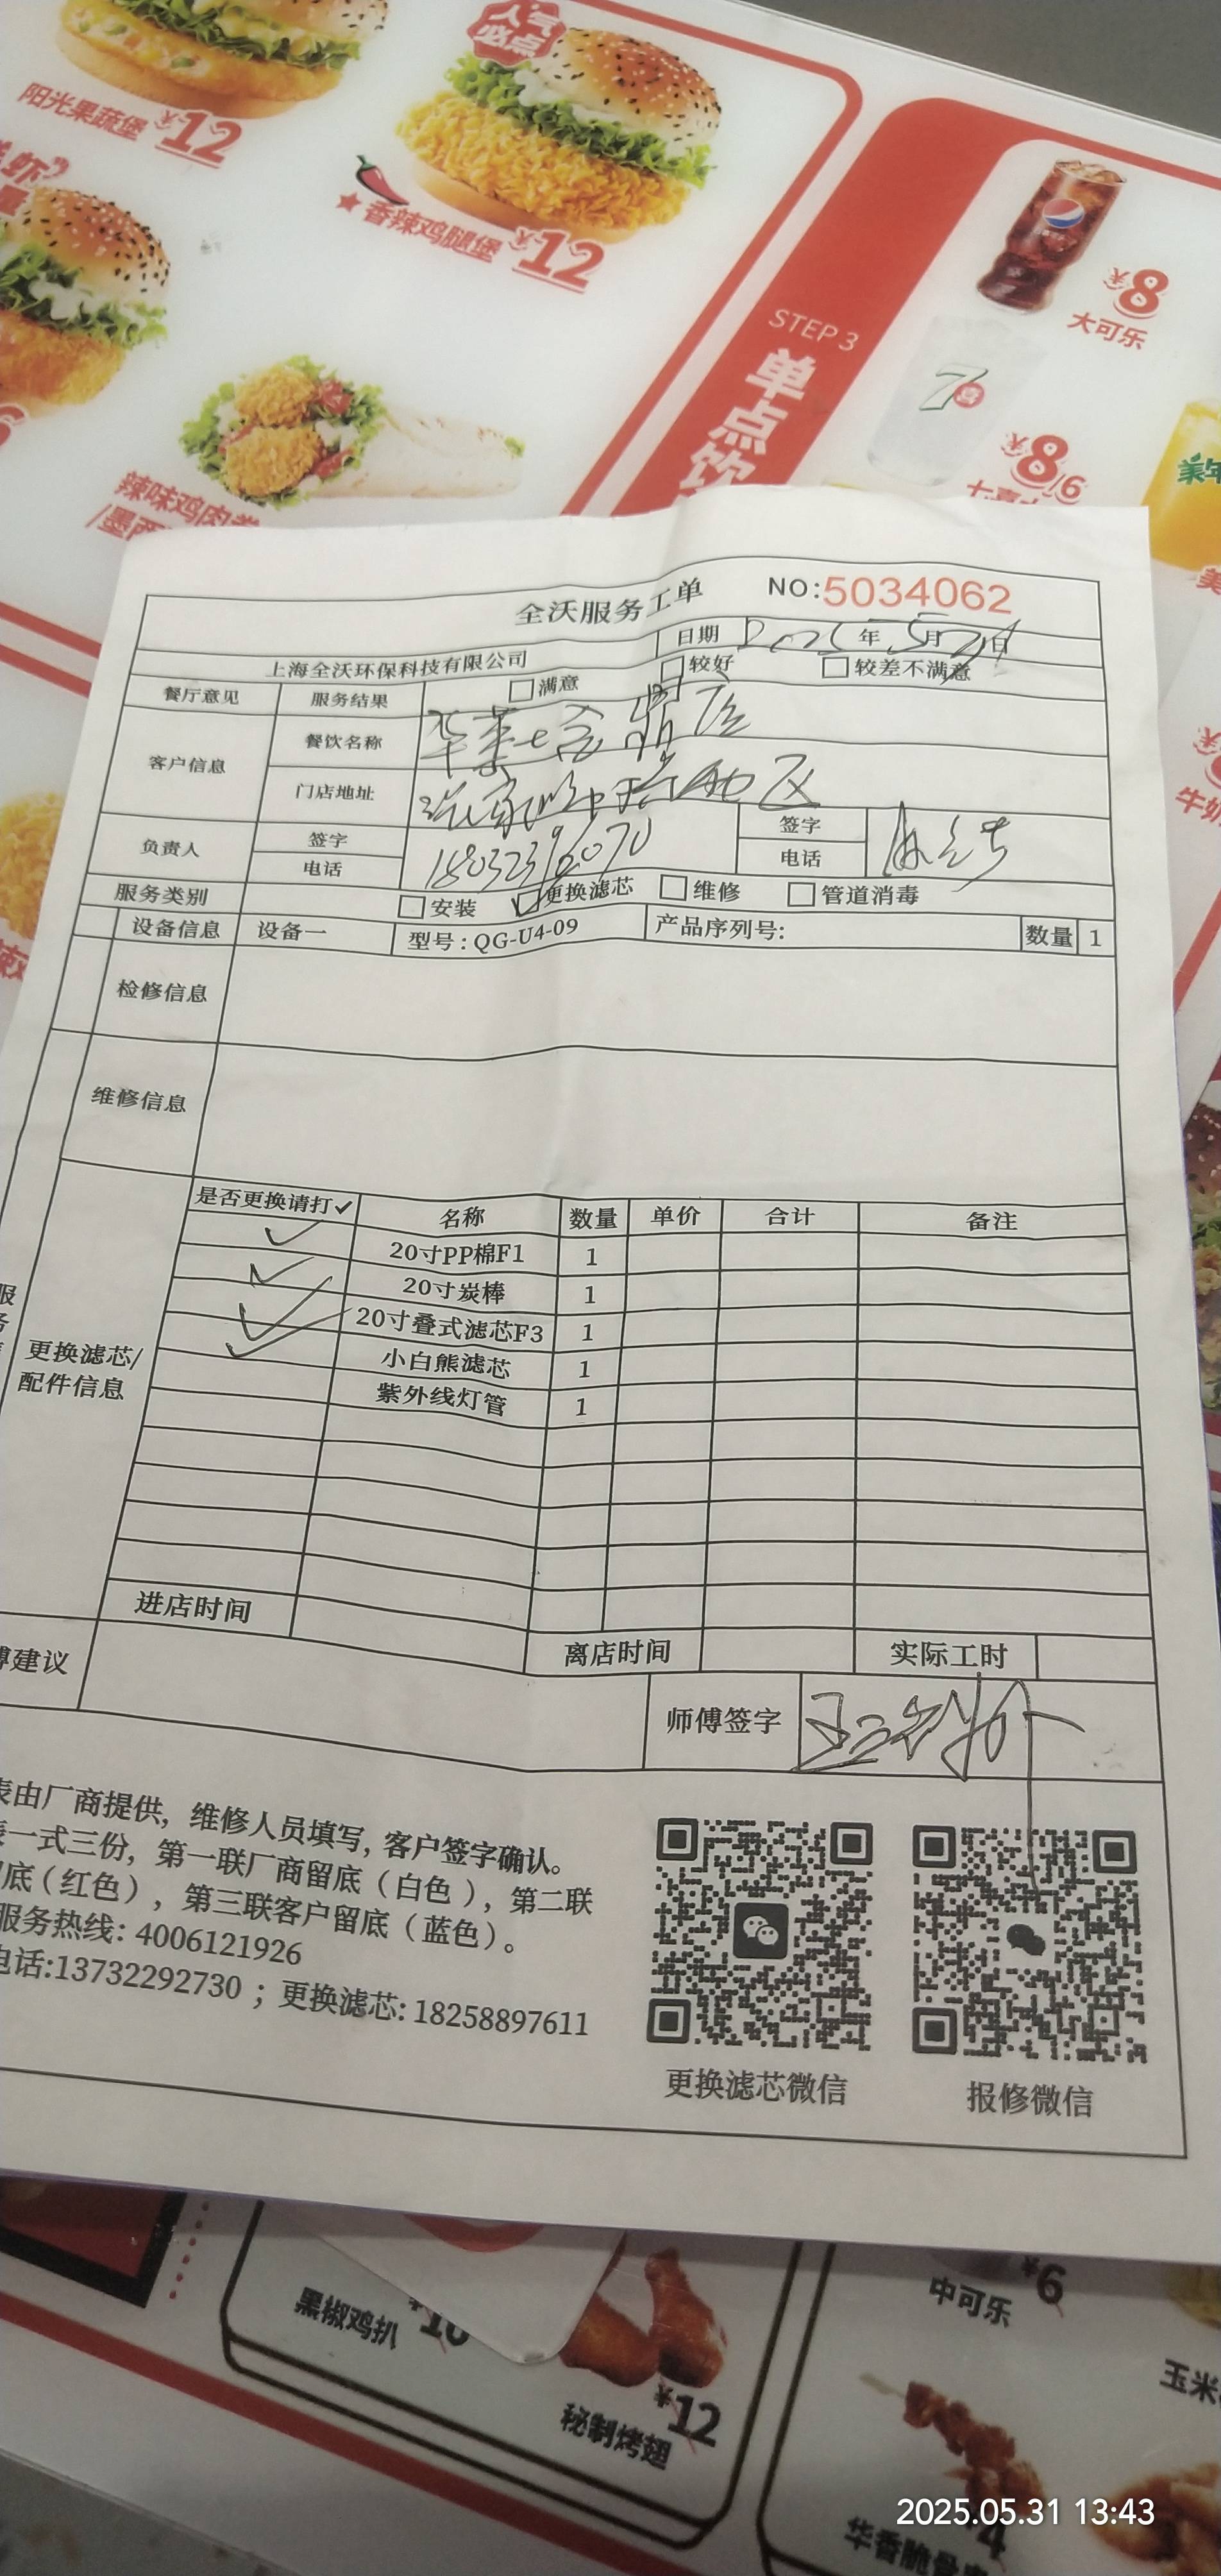 人气
必点
阳光果蔬堡 ¥12
香辣鸡腿堡 ¥12
STEP 3
单点饮
¥8
大可乐
7喜
¥8/6
辣味鸡肉卷
/墨西
全沃服务工单 NO:5034062
上海全沃环保科技有限公司 日期 2025年5月 日
餐厅意见 服务结果 满意 较好 较差不满意
客户信息 餐饮名称 华莱士
门店地址
负责人 签字 签字
电话 电话
服务类别 安装 更换滤芯 维修 管道消毒
设备信息 设备一 型号:QG-U4-09 产品序列号: 数量 1
检修信息
维修信息
是否更换请打✓ 名称 数量 单价 合计 备注
✓ 20寸PP棉F1 1
✓ 20寸炭棒 1
✓ 20寸叠式滤芯F3 1
✓ 小白熊滤芯 1
紫外线灯管 1
更换滤芯/
配件信息
进店时间 离店时间 实际工时
建议 师傅签字
表由厂商提供，维修人员填写，客户签字确认。
一式三份，第一联厂商留底（白色），第二联
底（红色），第三联客户留底（蓝色）。
服务热线: 4006121926
电话:13732292730；更换滤芯: 18258897611
更换滤芯微信 报修微信
黑椒鸡扒 ¥10
秘制烤翅 ¥12
中可乐 ¥6
玉米
华香脆骨
2025.05.31 13:43